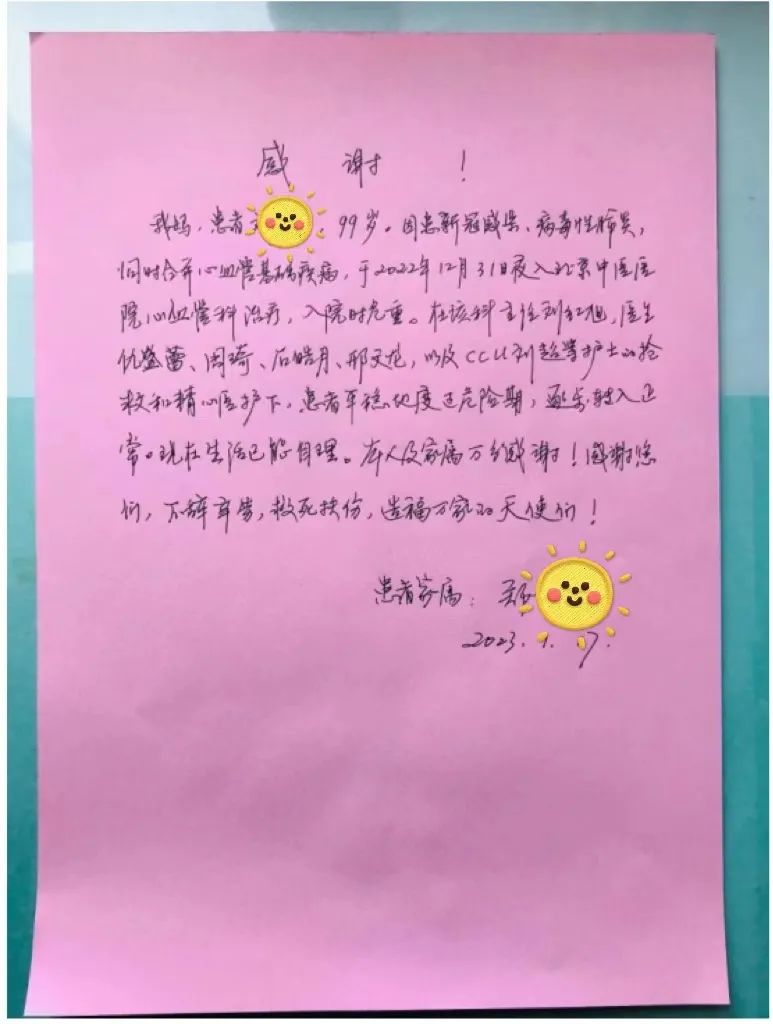 感 谢 !
我妈,患者 99岁。因患新冠感染、病毒性肺炎,
同时合并心血管基础疾病,于2022年12月31日夜入北京中医医
院心血管科治疗,入院时危重。在该科主任刘红旭,医生
仇盛蕾、周琦、石皓月、邢文龙,以及CCU刘超等护士的抢
救和精心医护下,患者平稳地度过危险期,逐步转入正
常。现在生活已能自理。本人及家属万分感谢!感谢您
们,不辞辛劳,救死扶伤,造福万家的天使们!
患者家属:
2023.1.